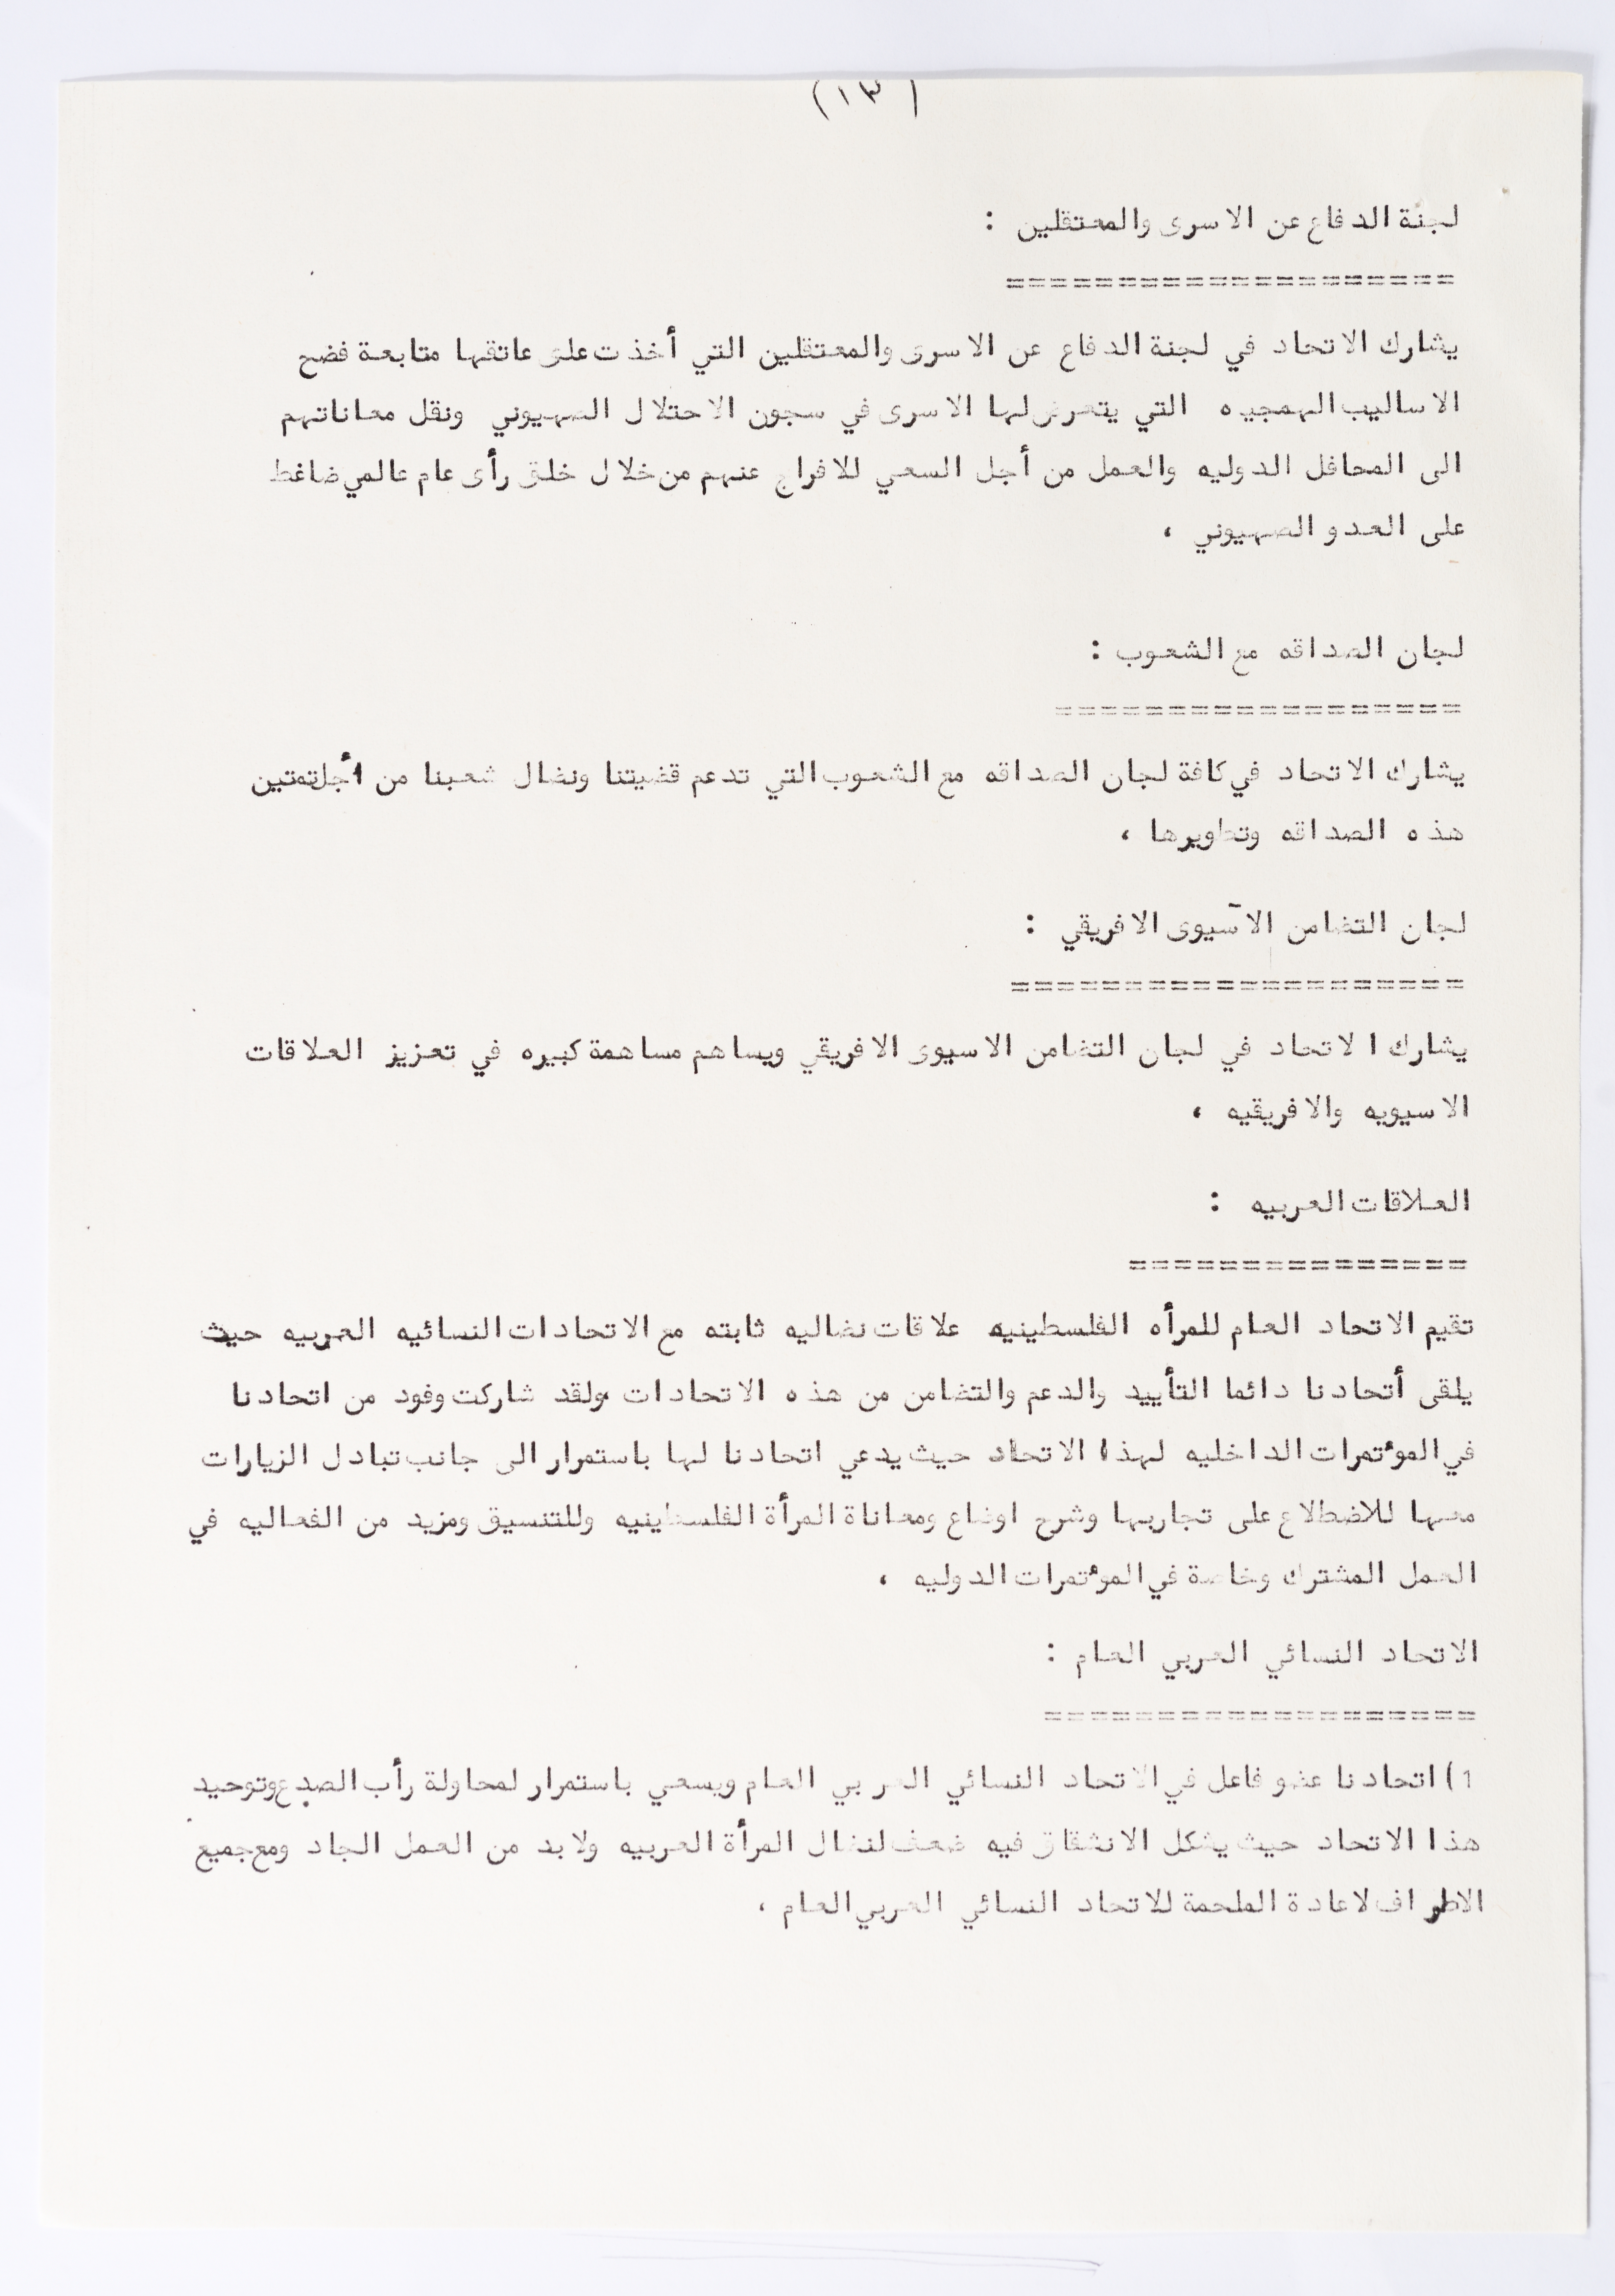 (١٣)
لجنة الدفاع عن الاسرى والمعتقلين :
====================
يشارك الاتحاد في لجنة الدفاع عن الاسرى والمعتقلين التي أخذت على عاتقها متابعة فضح
الاساليب الهمجيه التي يتعرض لها الاسرى في سجون الاحتلال الصهيوني ونقل معاناتهم
الى المحافل الدوليه والعمل من أجل السعي للافراج عنهم من خلال خلق رأى عام عالمي ضاغط
على العدو الصهيوني ،
لجان الصداقه مع الشعوب :
==================
يشارك الاتحاد في كافة لجان الصداقه مع الشعوب التي تدعم قضيتنا ونضال شعبنا من أجل تمتين
هذه الصداقه وتطويرها ،
لجان التضامن الآسيوى الافريقي :
====================
يشارك الاتحاد في لجان التضامن الاسيوى الافريقي ويساهم مساهمة كبيره في تعزيز العلاقات
الاسيويه والافريقيه ،
العلاقات العربيه :
===============
تقيم الاتحاد العام للمرأه الفلسطينيه علاقات نضاليه ثابته مع الاتحادات النسائيه العربيه حيث
يلقى أتحادنا دائما التأييد والدعم والتضامن من هذه الاتحادات ولقد شاركت وفود من اتحادنا
في المؤتمرات الداخليه لهذا الاتحاد حيث يدعي اتحادنا لها باستمرار الى جانب تبادل الزيارات
معها للاضطلاع على تجاربها وشرح اوضاع ومعاناة المرأة الفلسطينيه وللتنسيق ومزيد من الفعاليه في
العمل المشترك وخاصة في المؤتمرات الدوليه ،
الاتحاد النسائي العربي العام :
===================
1) اتحادنا عضو فاعل في الاتحاد النسائي العربي العام ويسعي باستمرار لمحاولة رأب الصدع وتوحيد
هذا الاتحاد حيث يشكل الانشقاق فيه ضعف لنضال المرأة العربيه ولا بد من العمل الجاد ومع جميع
الاطراف لاعادة الملحمة للاتحاد النسائي العربي العام .